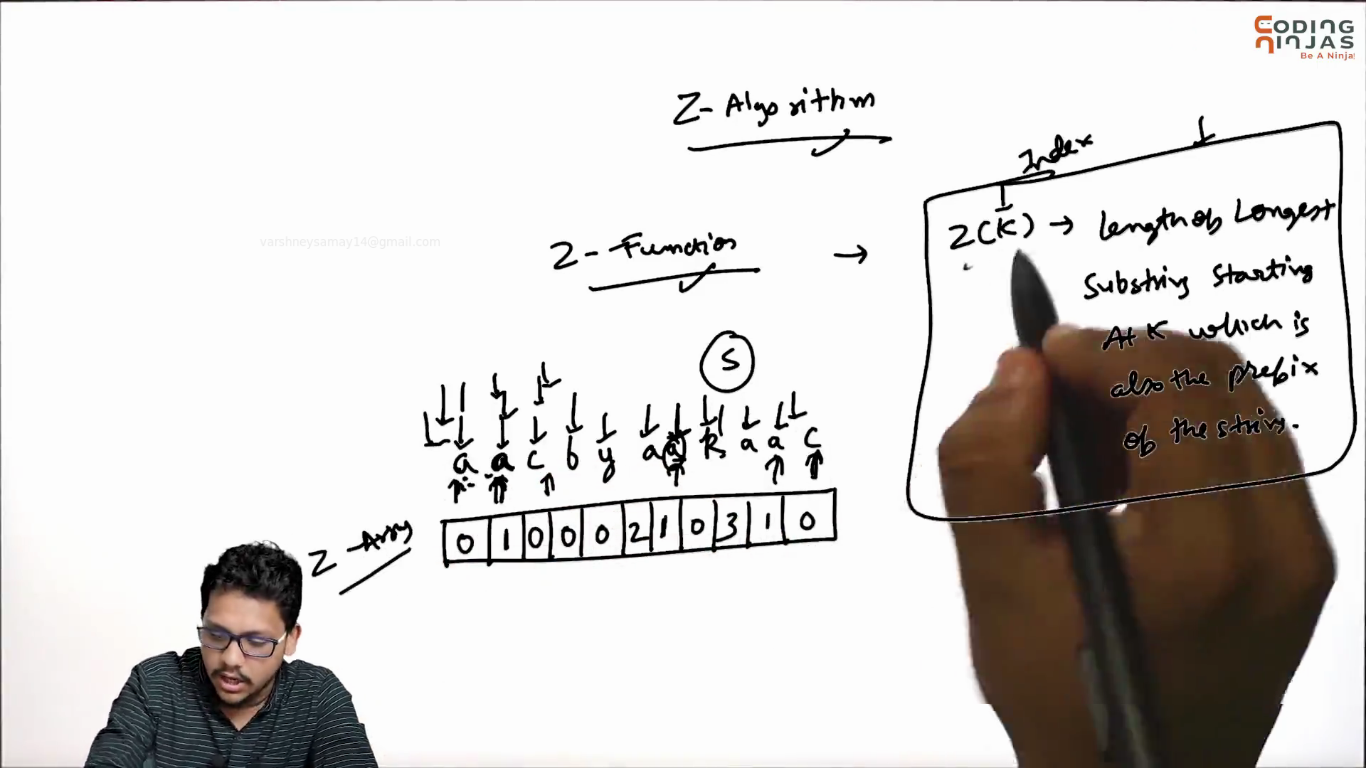 CODING
NINJAS
Be A Ninja!
Z-Algorithm
Index
varshneysamay14@gmail.com
Z-Function →
Z(K) → length of Longest
Substring Starting
At K which is
also the prefix
of the string.
S
a a c b y a a k a a c
Z-Array
0 1 0 0 0 2 1 0 3 1 0